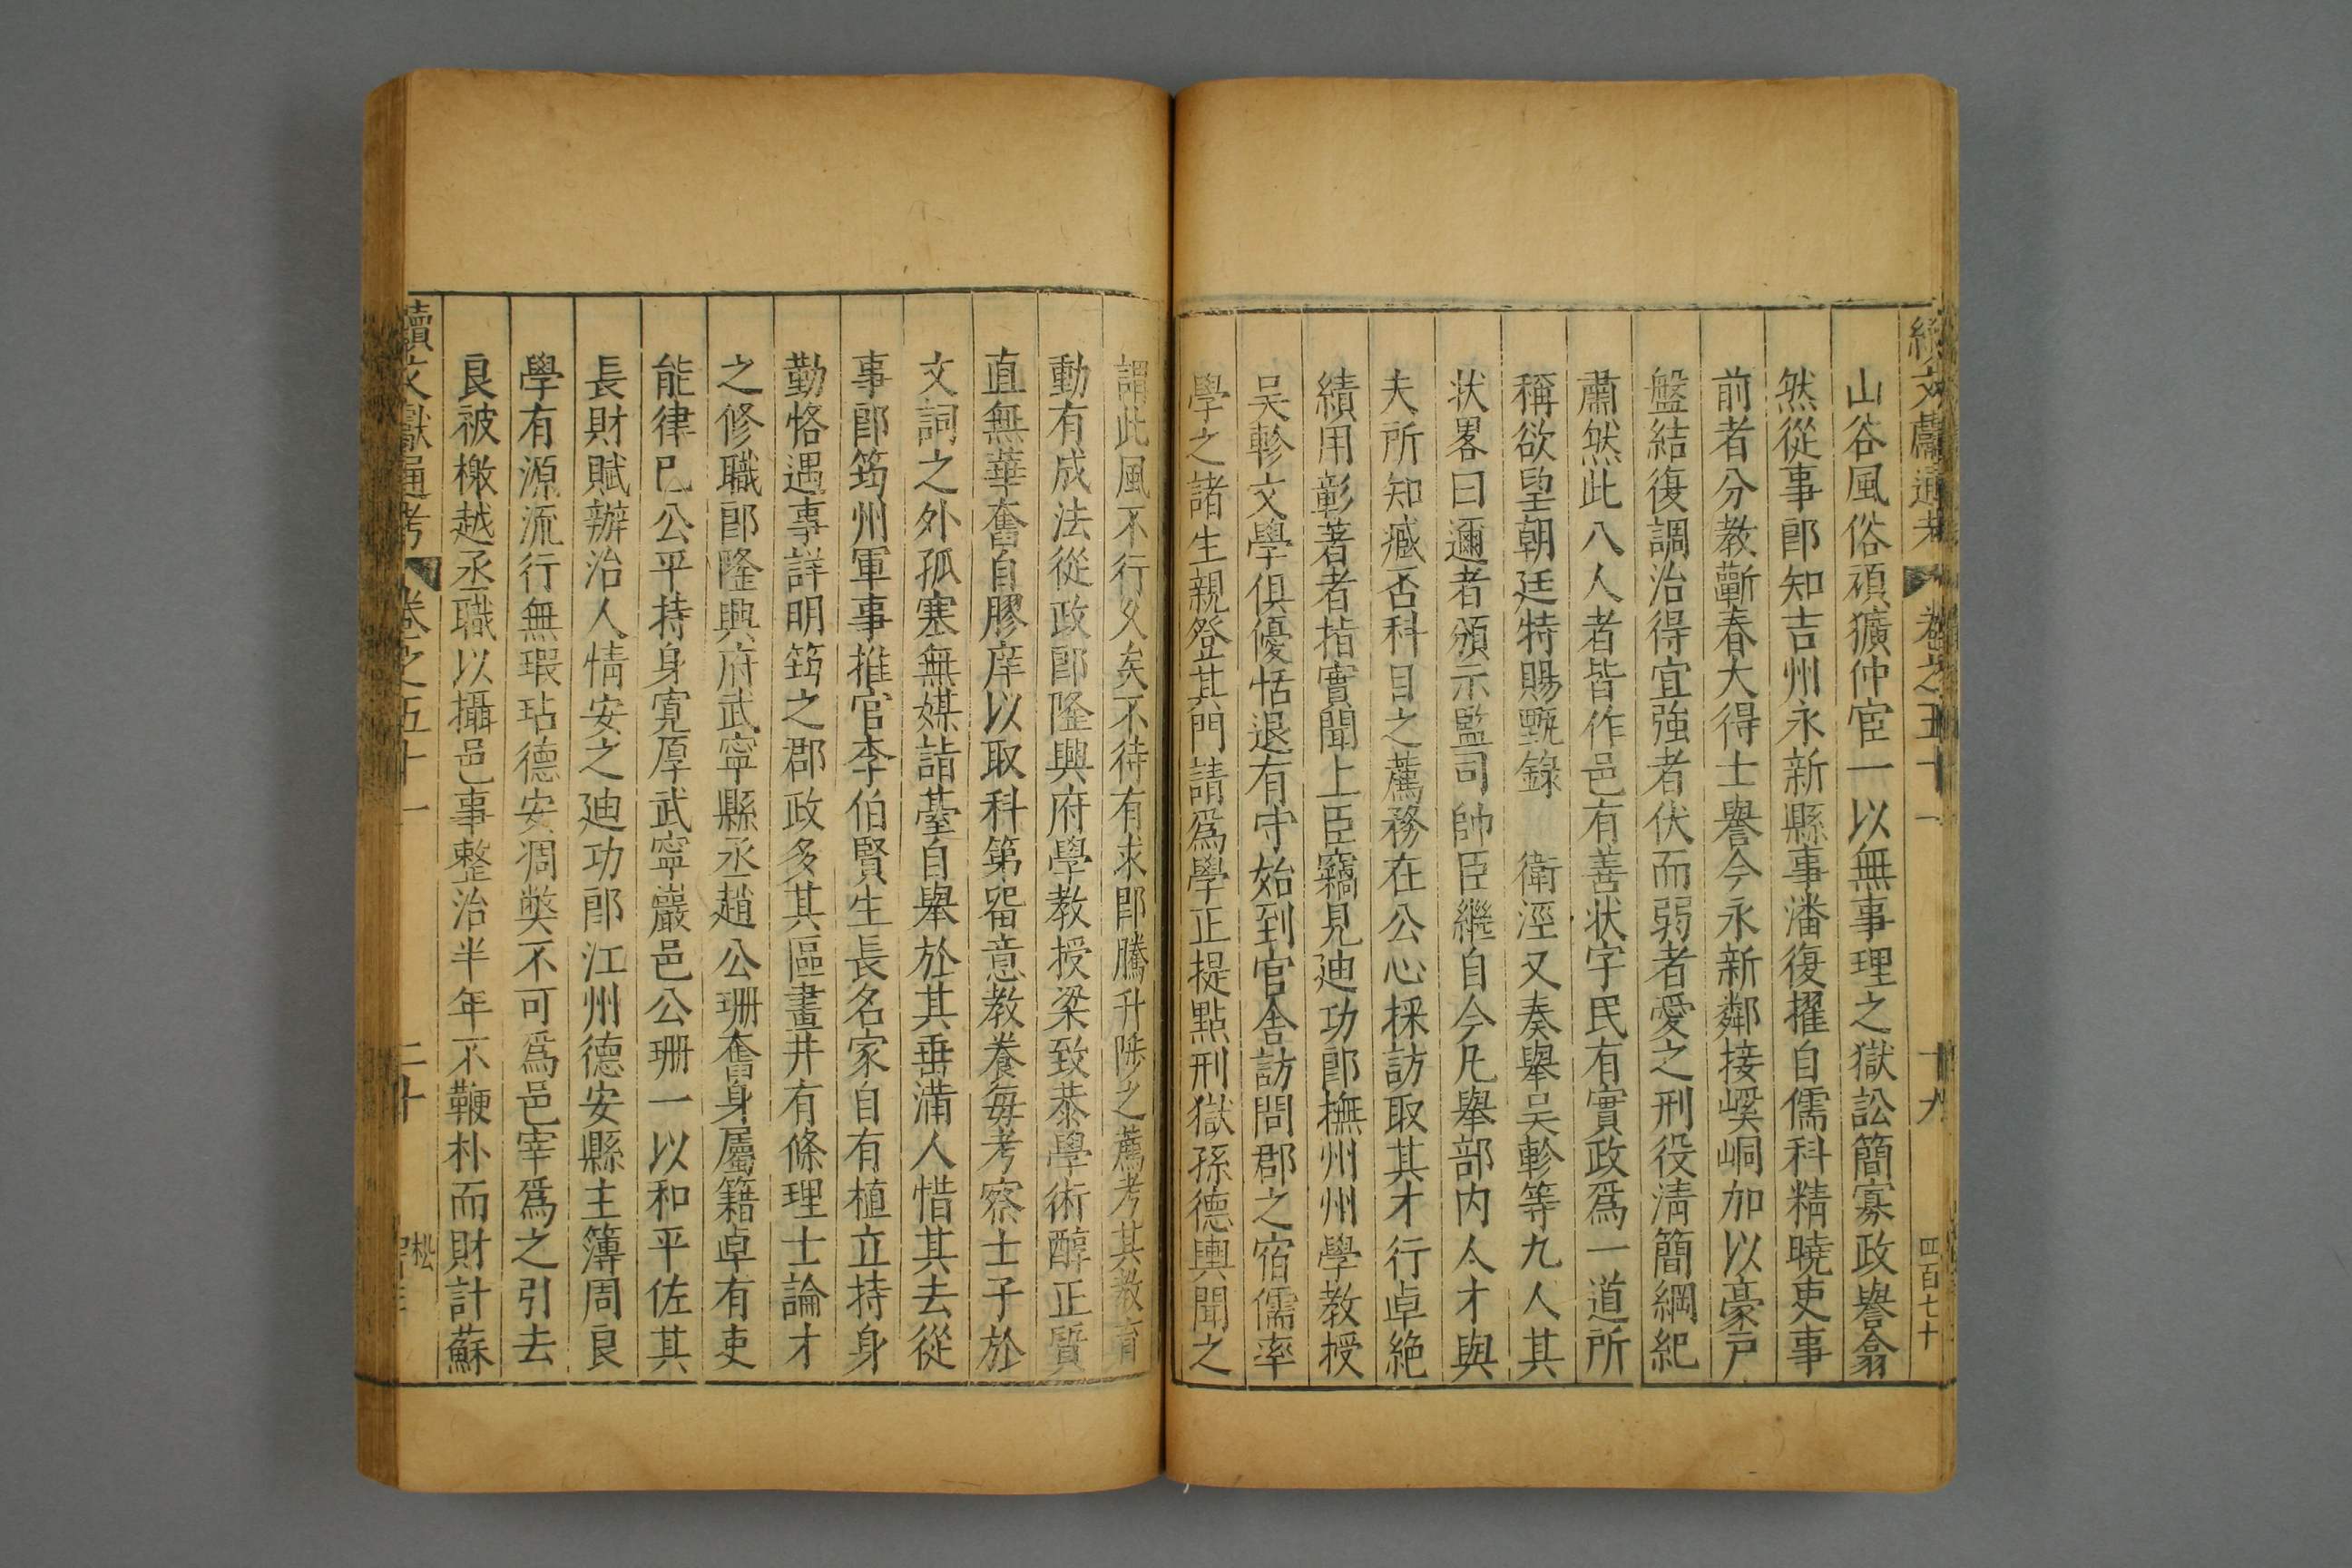 續文獻通考 卷之五十一 十九 四百七十
山谷風俗頑獷仲宦一以無事理之獄訟簡寡政譽翕
然從事郎知吉州永新縣事潘復擢自儒科精曉吏事
前者分教蘄春大得士譽今永新鄰接嵠峒加以豪戸
盤結復調治得宜強者伏而弱者愛之刑役清簡綱紀
肅然此八人者皆作邑有善状字民有實政爲一道所
稱欲望朝廷特賜甄錄　衛涇又奏舉吳軫等九人其
状畧曰邇者頒示監司帥臣繼自今凡舉部内人才與
夫所知臧否科目之薦務在公心採訪取其才行卓絶
績用彰著者指實聞上臣竊見廸功郎撫州州學教授
吳軫文學俱優恬退有守始到官舍訪問郡之宿儒率
學之諸生親登其門請爲學正提點刑獄孫德輿聞之
謂此風不行乆矣不待有求即騰升陟之薦考其教育
動有成法從政郎隆興府學教授梁致恭學術醇正質
直無華奮自膠庠以取科第畱意教養每考察士子於
文詞之外孤寒無媒詣臺自舉於其垂滿人惜其去從
事郎筠州軍事推官李伯賢生長名家自有植立持身
勤恪遇事詳明筠之郡政多其區畫井有條理士論才
之修職郎隆興府武寧縣丞趙公珊奮身屬籍卓有吏
能律已公平持身寛厚武寧巖邑公珊一以和平佐其
長財賦辦治人情安之廸功郎江州德安縣主簿周良
學有源流行無瑕玷德安凋獘不可爲邑宰爲之引去
良被檄越丞職以攝邑事整治半年不鞭朴而財計蘇
續文獻通考 卷之五十一 二十 松